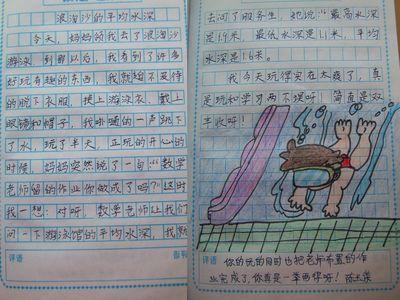 浪淘沙的平均水深
今天，妈妈带我去了浪淘沙
游泳，到那以后，我看到了许多
好玩有趣的东西，我就迫不及待
的脱下衣服，换上游泳衣、戴上
眼镜和帽子，我扑通的一声跳下
了水，玩了半天，正玩的开心的
时候，妈妈突然说了一句："数学
老师留的作业你做成了吗？"这时
我一想：对呀，数学老师让我们
问一下游泳馆的平均水深，我就
评语
去问了服务生，她说："最高水深
是1.9米，最低水深是1.1米，平均
水深是1.6米。
我今天玩得实在太爽了，真
是玩和学习两不误呀！简直是双
丰收呀！
评语
你的玩的同时也把老师布置的作
业完成了，你真是一举两得呀！